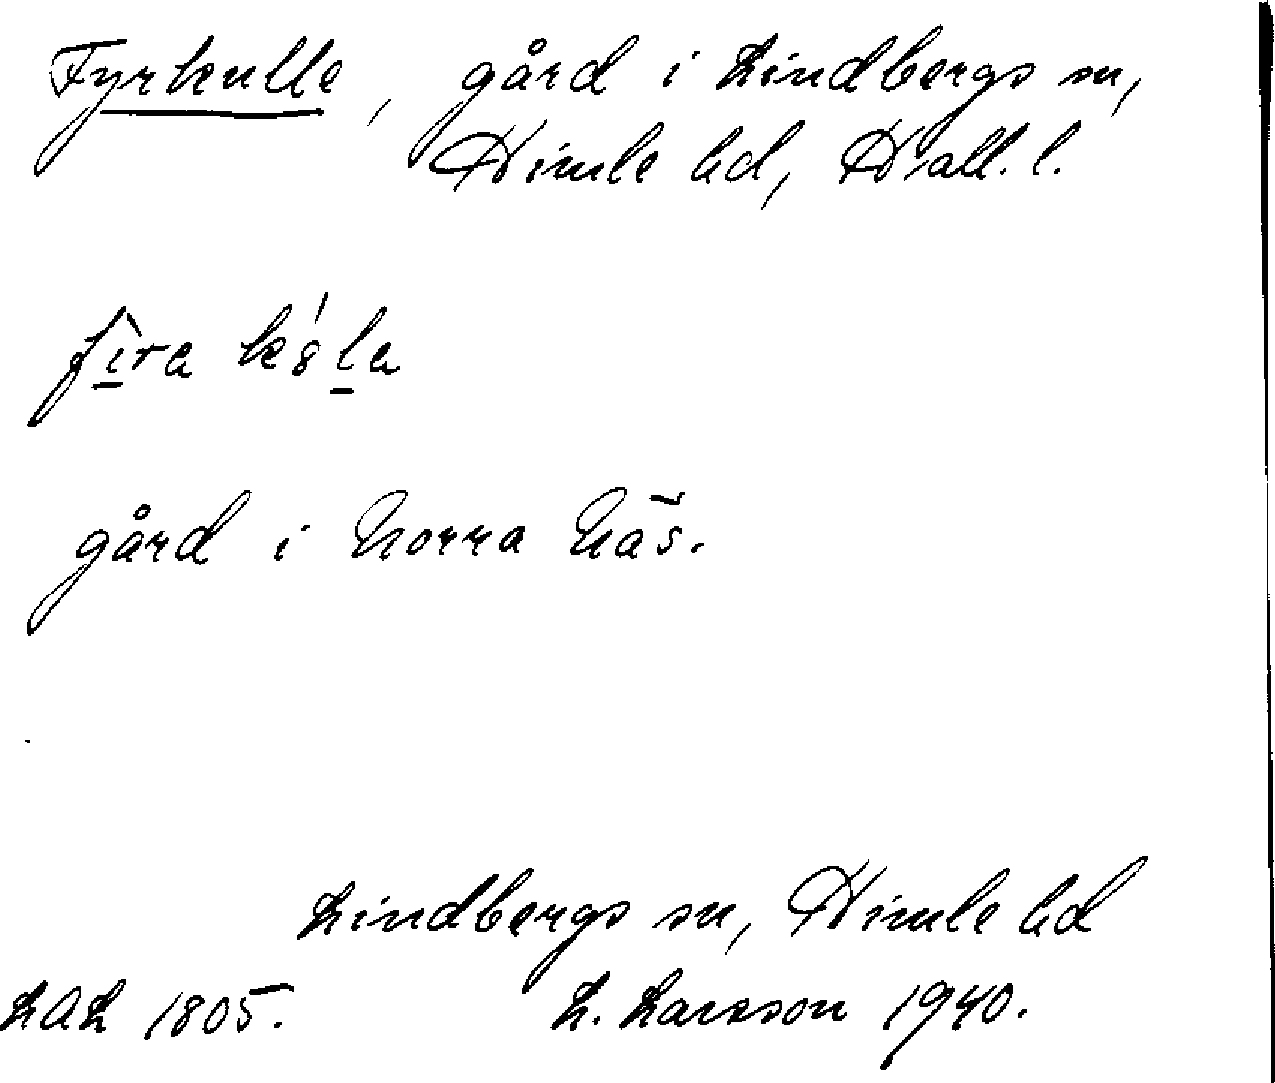 Fyrkulle, gård i Lindbergs sn,
Himle hd, Hall. l.
gård i Norra Näs.
Lindbergs sn, Himle hd
LAL 1805. L. Larsson 1940.